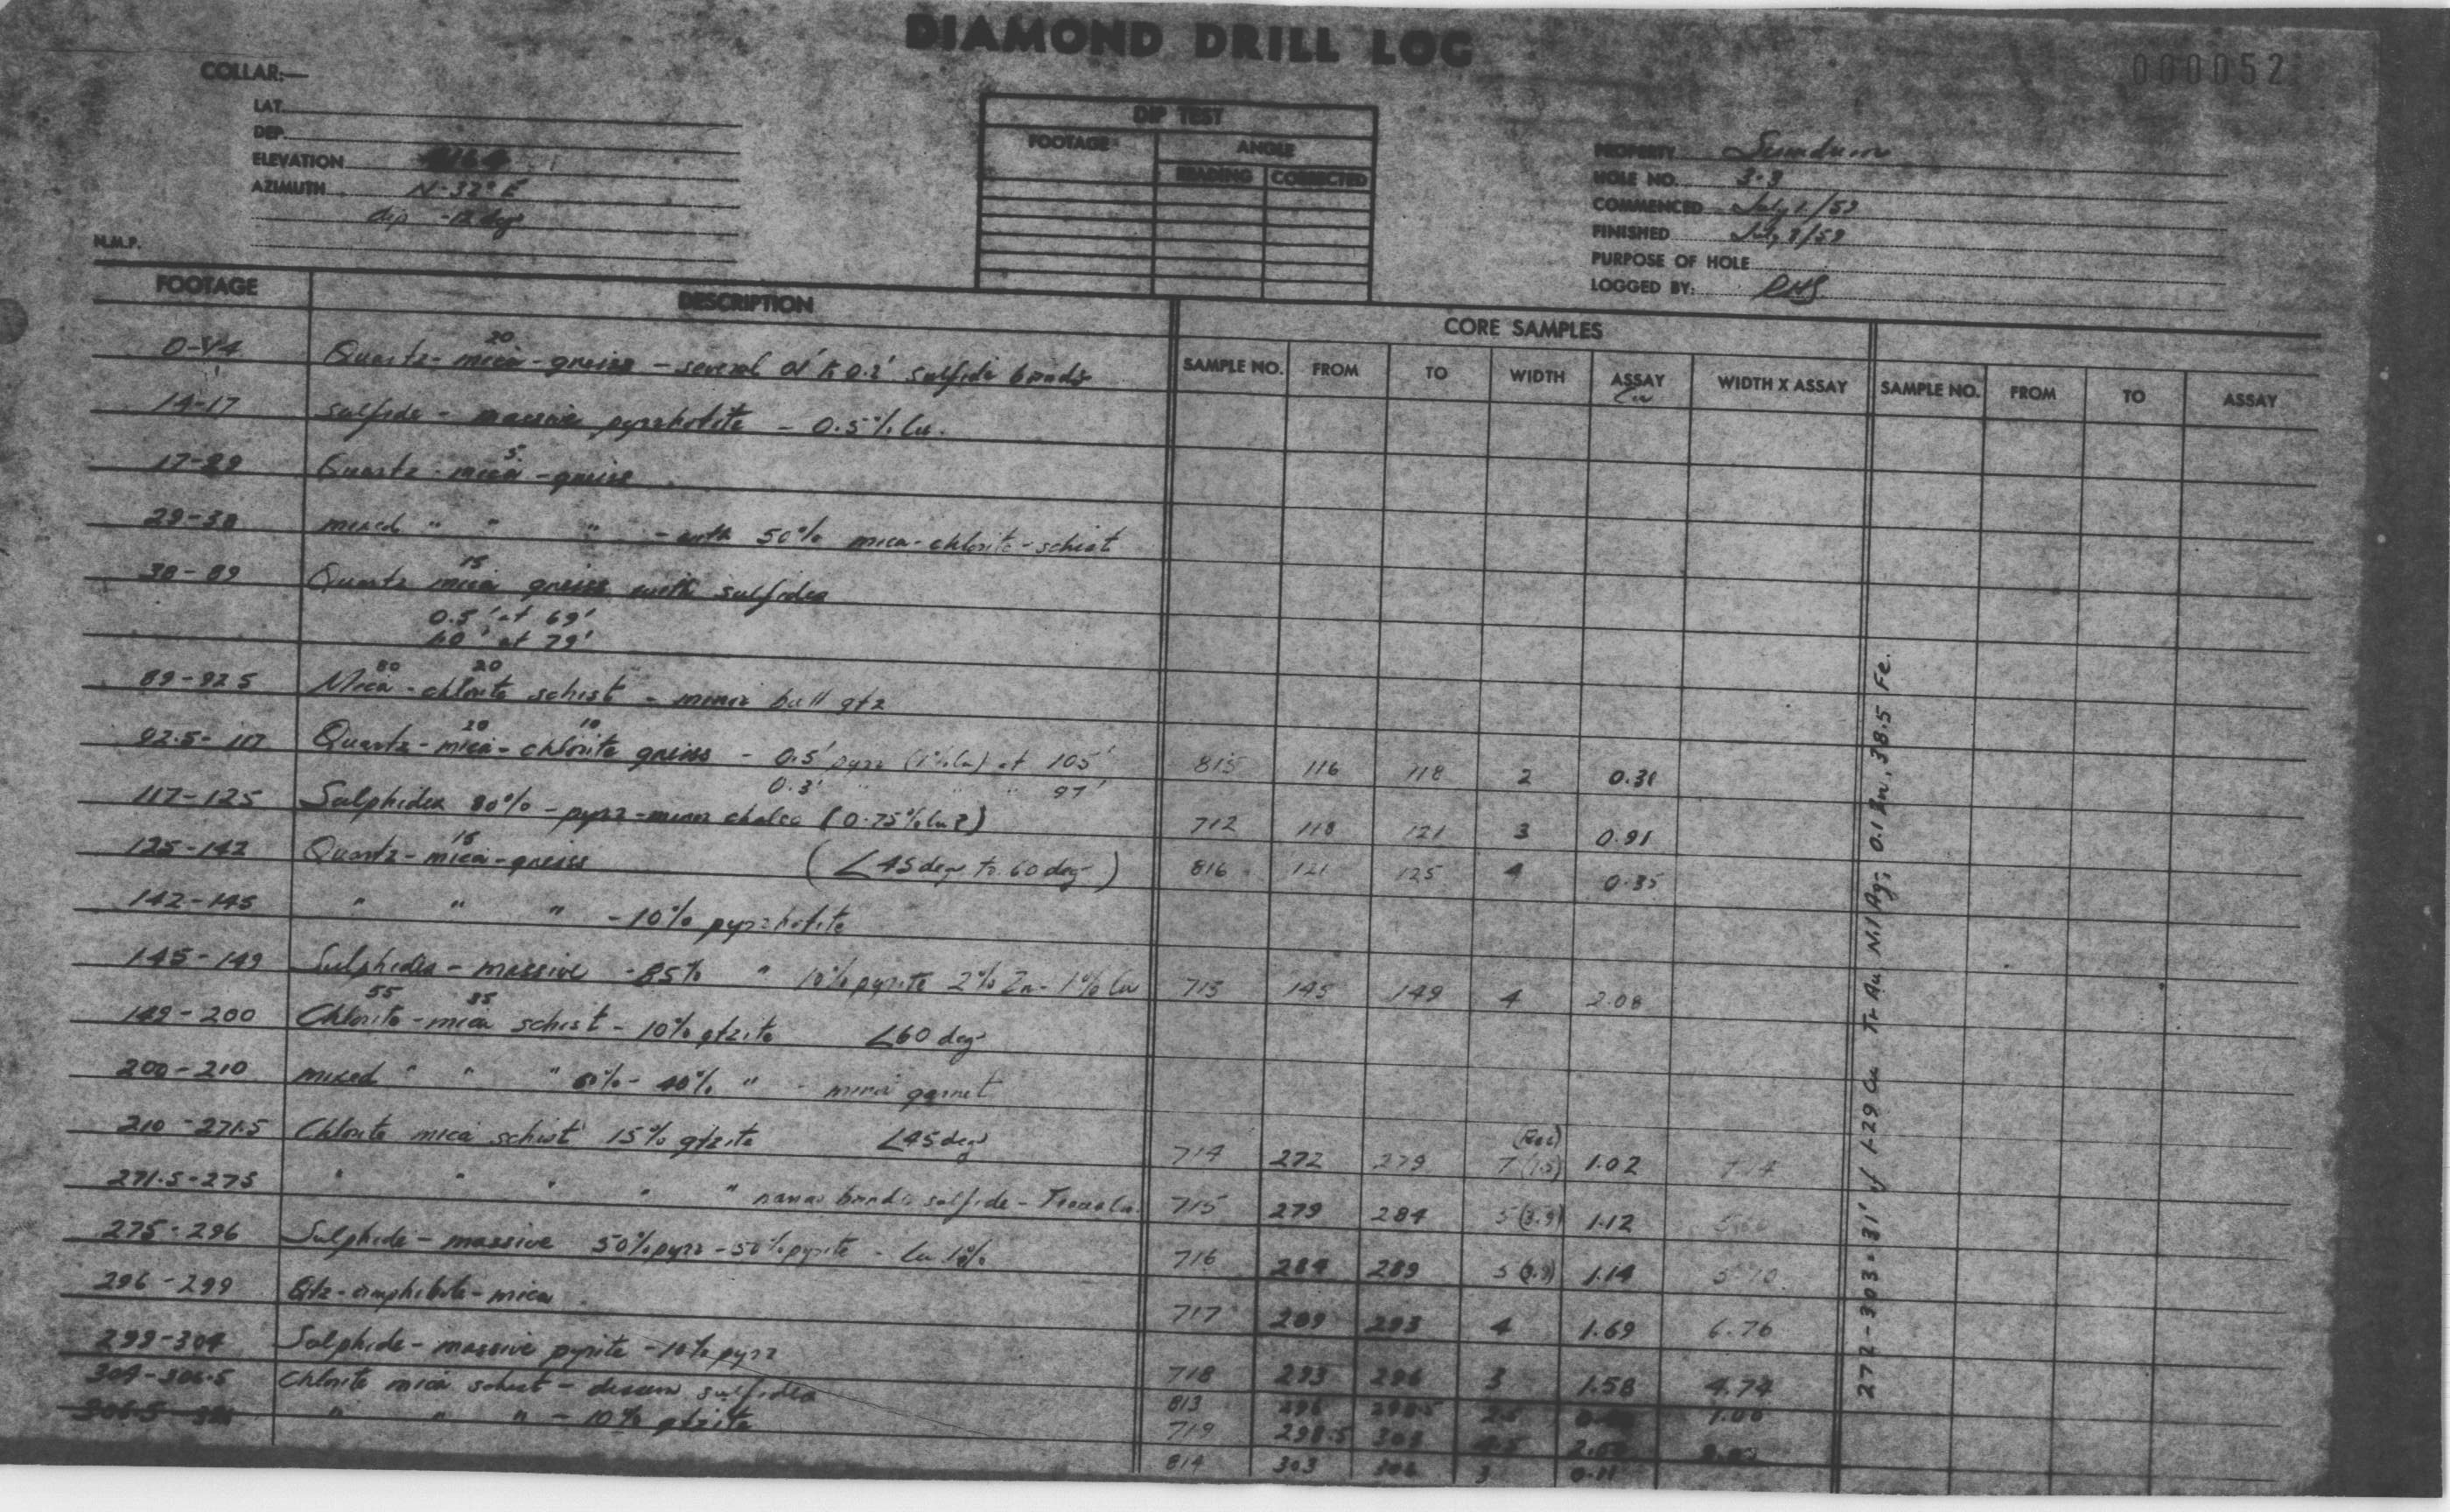 DIAMOND DRILL LOG
000052
COLLAR:—
LAT.
DEP.
ELEVATION
AZIMUTH N-32° E
dip -12 deg
N.M.P.
DIP TEST
FOOTAGE ANGLE
READING CORRECTED
PROPERTY Sumdum
HOLE NO. 3-3
COMMENCED July 1/59
FINISHED July 3/59
PURPOSE OF HOLE
LOGGED BY: RHS
FOOTAGE DESCRIPTION CORE SAMPLES
SAMPLE NO. FROM TO WIDTH ASSAY Cu WIDTH X ASSAY SAMPLE NO. FROM TO ASSAY
20
0-14 Quartz-mica-gneiss - several 0.1' to 0.2' sulfide bands
14-17 sulfide - massive pyrrhotite - 0.5% Cu.
5
17-29 Quartz-mica-gneiss
29-38 mixed " " " - with 50% mica-chlorite-schist
15
38-89 Quartz mica gneiss with sulfides
0.5' at 69'
1.0' at 79'
80 20
89-92.5 Mica-chlorite schist - minor bull qtz
20 10
92.5-117 Quartz-mica-chlorite gneiss - 0.5' pyrr (1% Cu) at 105' 815 116 118 2 0.31
0.3' " " " 97'
117-125 Sulphides 80% - pyrr-minor chalco (0.75% Cu?) 712 118 121 3 0.91
15
125-142 Quartz-mica-gneiss (∠45 deg to 60 deg) 816 121 125 4 0.35
142-145 " " " - 10% pyrrhotite
145-149 Sulphides - massive - 85% " 10% pyrite 2% Zn - 1% Cu 713 145 149 4 2.08
55 35
149-200 Chlorite-mica schist - 10% qtzite ∠60 deg
200-210 mixed " " " 60% - 40% " - minor garnet
210-271.5 Chlorite mica schist 15% qtzite ∠45 deg
(Rec)
714 272 279 7 1.02 7.14
271.5-275 " " " " " narrow bands sulfide - Trace Cu. 715 279 284 5 (3.9) 1.12 5.60
275-296 Sulphide - massive 50% pyrr - 50% pyrite - Cu 1% 716 284 289 5 (3.9) 1.14 5.70
296-299 Qtz-amphibole-mica 717 289 293 4 1.69 6.76
299-304 Sulphide - massive pyrite - 10% pyrr 718 293 296 3 1.58 4.74
304-306.5 Chlorite mica schist - dissem sulfides 813 296 298.5 2.5 1.00
" " " - 10% qtzite 719 298.5 303 4.5
814 303 306 3 0.11
272-303 = 31' of 1.29 Cu Tr Au Nil Ag; 0.1 Zn, 38.5 Fe.